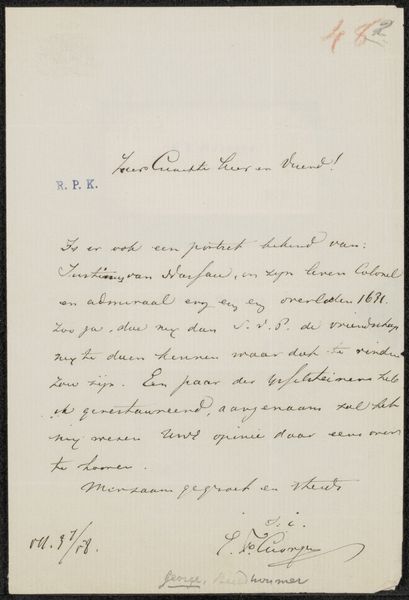 482
Zeer Geachte Heer en Vriend!
R. P. K.
Is er ook een portret bekend van:
Justinus van Nassau, in zijn leven Colonel
en admiraal enz enz enz overleden 1631.
Zoo ja, doe mij dan S. V. P. de vriendschap
mij te doen kennen waar dat te vinden
zou zijn. Een paar der heb
ik gerestaureerd, aangenaam zal het
mij wezen Uwe opinie daar eens over
te hooren.
gegroet en steeds
t. t.
George